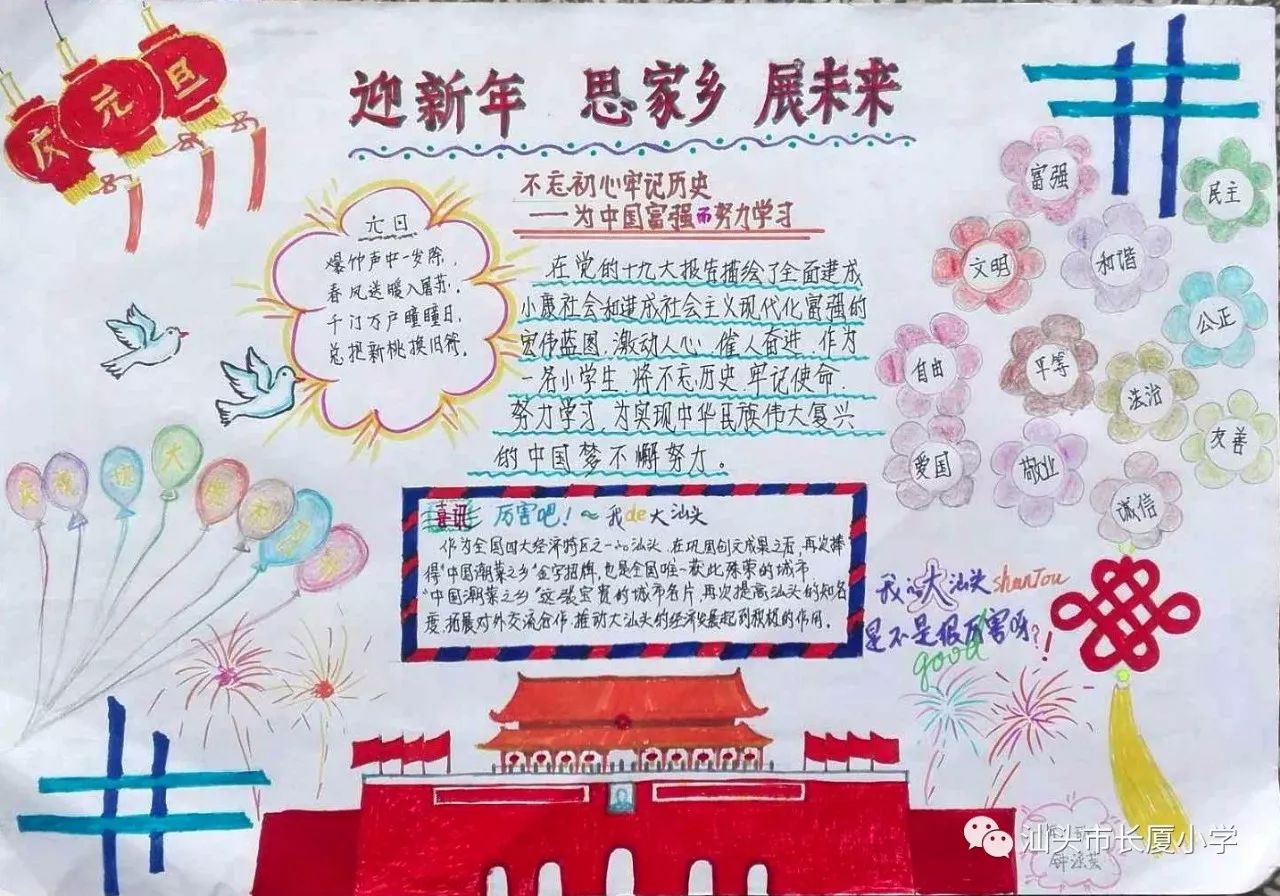 庆元旦
迎新年 思家乡 展未来
不忘初心牢记历史
——为中国富强而努力学习
元旦
爆竹声中一岁除,
春风送暖入屠苏。
千门万户曈曈日,
总把新桃换旧符。
在党的十九大报告描绘了全面建成
小康社会和建成社会主义现代化富强的
宏伟蓝图,激动人心,催人奋进,作为
一名小学生,将不忘历史,牢记使命,
努力学习,为实现中华民族伟大复兴
的中国梦不懈努力。
富强
民主
文明
和谐
公正
自由
平等
法治
友善
爱国
敬业
诚信
大
胜利
喜讯 厉害吧!~我de大汕头
作为全国四大经济特区之一的汕头,在巩固创文成果之后,再次捧
得"中国潮菜之乡"金字招牌,也是全国唯一获此殊荣的城市,
"中国潮菜之乡"这张宝贵的城市名片,再次提高汕头的知名
度,拓展对外交流合作,推动大汕头的经济发展起到积极的作用。
我的大汕头shanTou
是不是很厉害呀?!
good
汕头市长厦小学